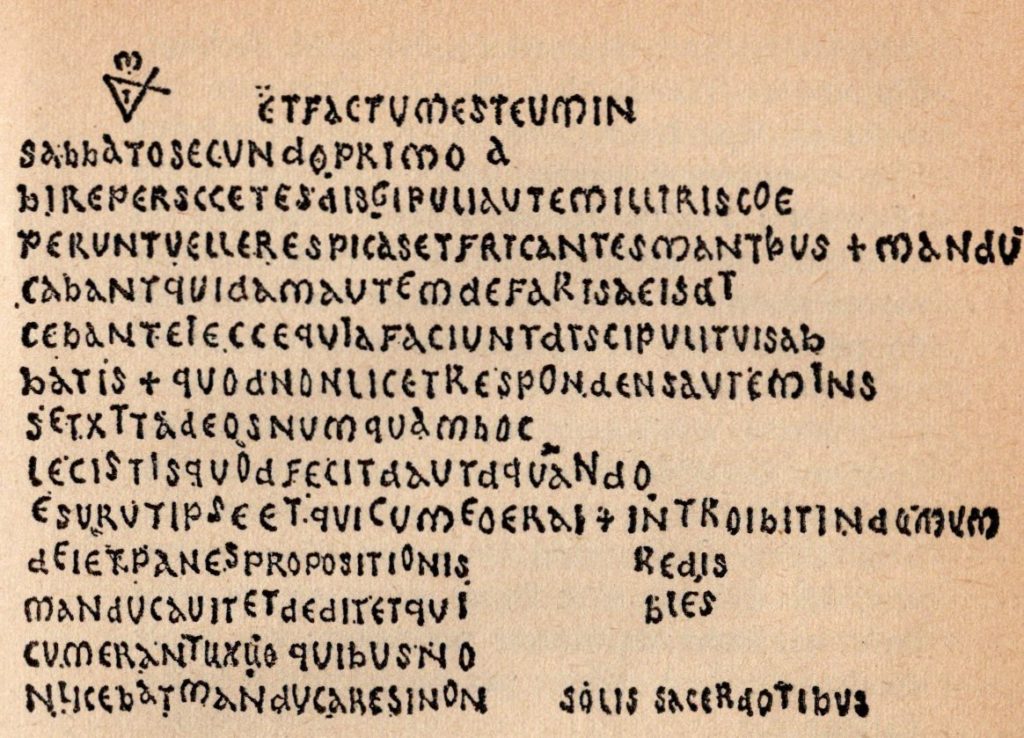 ETFACTUMESTEUMIN
SABBATOSECUNDOPRIMO A
BIREPERSCCETESDISGIPULIAUTEMILLIRISCOE
PERUNTVELLERESPICASETFRICANTESMANIBUS + MANDU
CABANTQUIDAMAUTEMDEFARISAEISDT
CEBANTEIECCEQUIAFACIUNTDTSCIPULITUISAB
BATIS + QUODNONLICETRESPONDENSAUTEMINS
SETXTTADEOSNUMQUAMHOC
LECISTISQUODFECITDAUTDQUANDO
ESURUTIPSEETQUICUMEOERAI + INTROIBITINDOMUM
DEIETPANESPROPOSITIONIS REDIS
MANDUCAUITETDEDITETQUI BLES
CUMERANTUXUO QUIBUSNO
NLICEBATMANDUCARESINON SOLIS SACERDOTIBUS